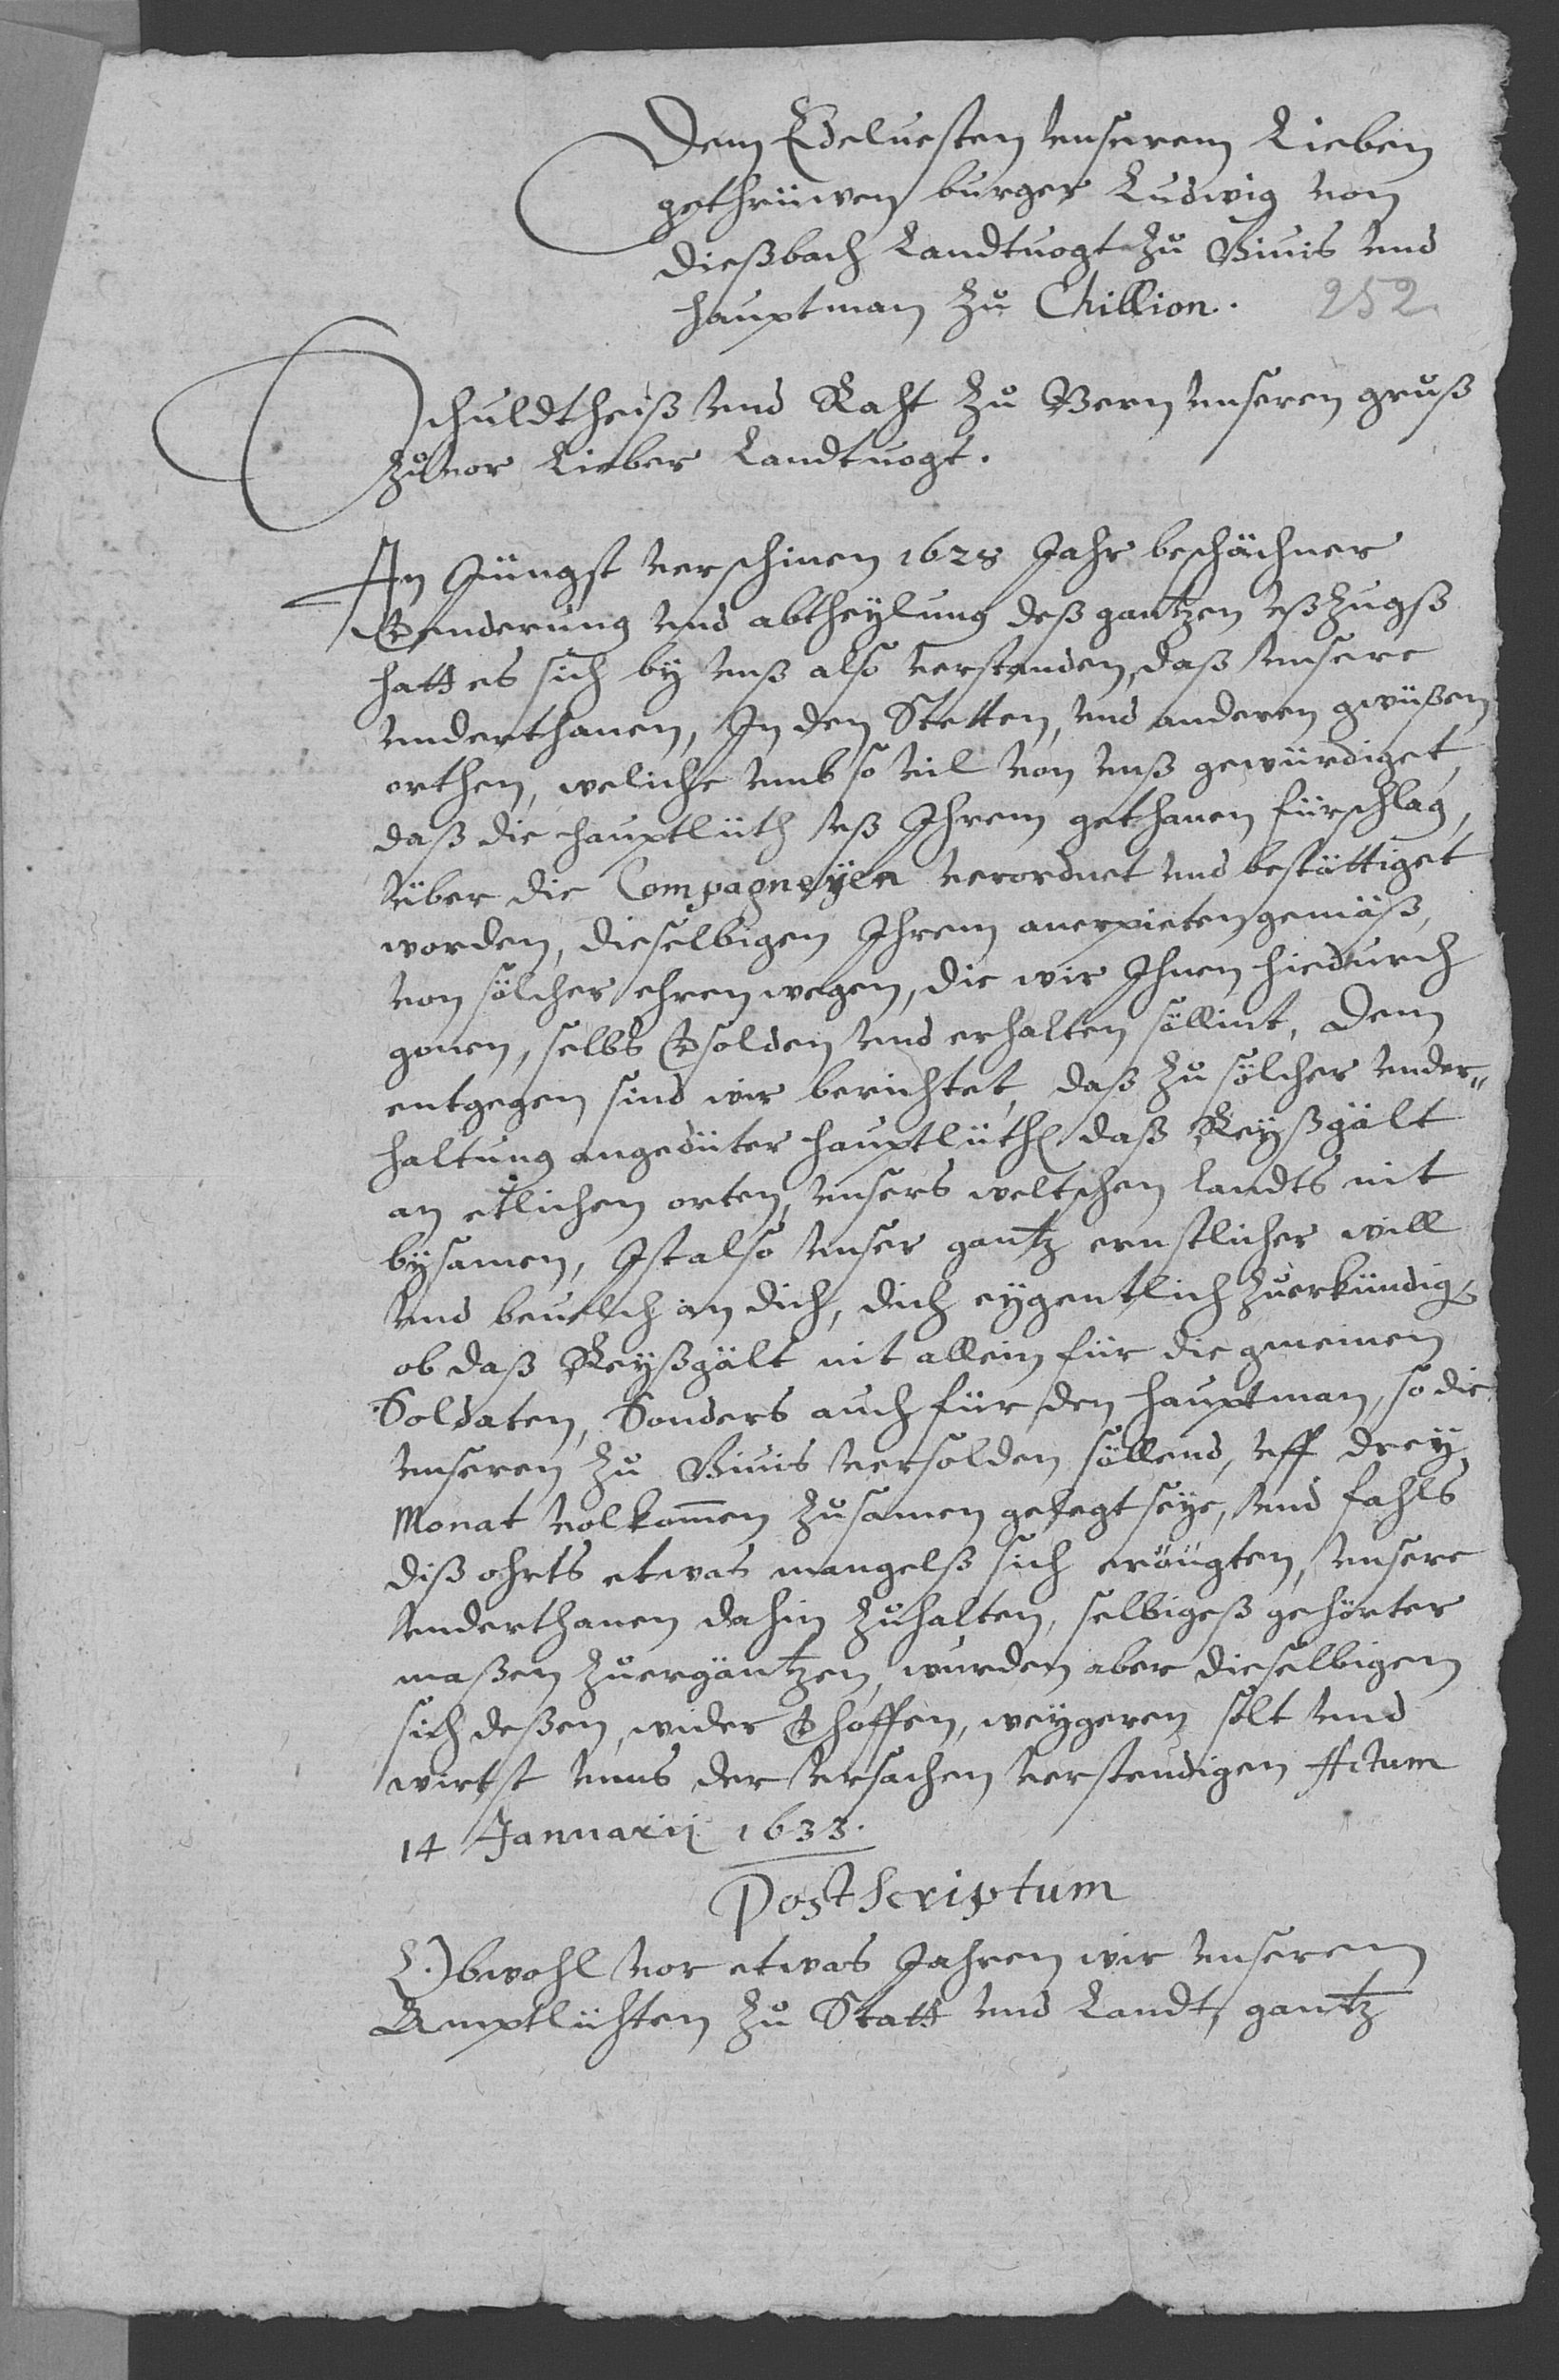 Dem Edeluesten unserem Lieben
gethrüwen burger Ludwig von
Dießbach Landtuogt zu Viuis und
hauptman zu Chillion. 252
Schuldtheiß und Raht zu Bern unseren gruß
zuvor Lieber Landtuogt.
In Jüngst verschinen 1628 Jahr beschächner
Enderung und abtheylung deß gantzen ußzugß
hatt es sich by unß also verstanden, daß unsere
underthanen, In den Stetten, und anderen gwüßen
orthen, weliche umb so vil von unß gewürdiget,
daß die hauptlüth uß Ihrem gethanen fürschlag,
über die Compagneyen verordnet und bestättiget
worden, dieselbigen Ihrem anerpieten gemäß,
von sölcher ehren wegen, die wir Ihnen hiedurch
gonen, selbs bsolden und erhalten söllint, Dem
entgegen sind wir berichtet, daß zu sölcher under„
haltung angedüter hauptlüth daß Reyßgält
an etlichen orten, unsers weltschen landts nit
bysamen, Ist also unser gantz ernstlicher will
und beuelch an dich, dich eygentlich zuerkündig
ob daß Reyßgält nit allein für die gmeinen
Soldaten, Sonders auch für den hauptman, so die
unseren zu Viuis versolden söllend, uff drey
Monat volkommen zusamen gelegt seye, und fahls
diß ohrts etwas mangelß sich eröugten, unsere
underthanen dahin zuhalten, selbigeß gehörter
maßen zuergäntzen, wurden aber dieselbigen
sich deßen, wider verhoffen, weygeren solt und
wirst unns der ursachen verstendigen Actum
14 Januarij 1633.
Postscriptum
Obwohl vor etwas Jahren wir unseren
Amptlühten zu Statt und Landt, gantz